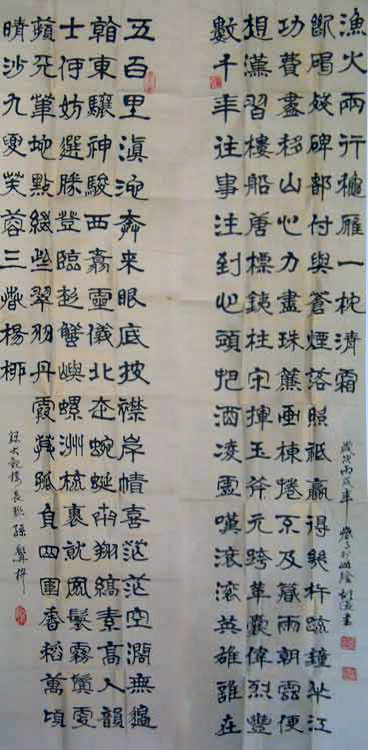 五百里滇池奔來眼底披襟岸幘喜茫茫空闊無邊
看東驤神駿西翥靈儀北走蜿蜒南翔縞素高人韻
士何妨選勝登臨趁蟹嶼螺洲梳裹就風鬟霧鬢更
蘋天葦地點綴些翠羽丹霞莫孤負四圍香稻萬頃
晴沙九夏芙蓉三春楊柳
錄大觀樓長聯 孫髯
數千年往事注到心頭把酒凌虛嘆滾滾英雄誰在
想漢習樓船唐標鐵柱宋揮玉斧元跨革囊偉烈豐
功費盡移山心力盡珠簾畫棟捲不及暮雨朝雲便
斷碣殘碑都付與蒼煙落照祗贏得幾杵疏鐘半江
漁火兩行秋雁一枕清霜
歲次丙戌年 書